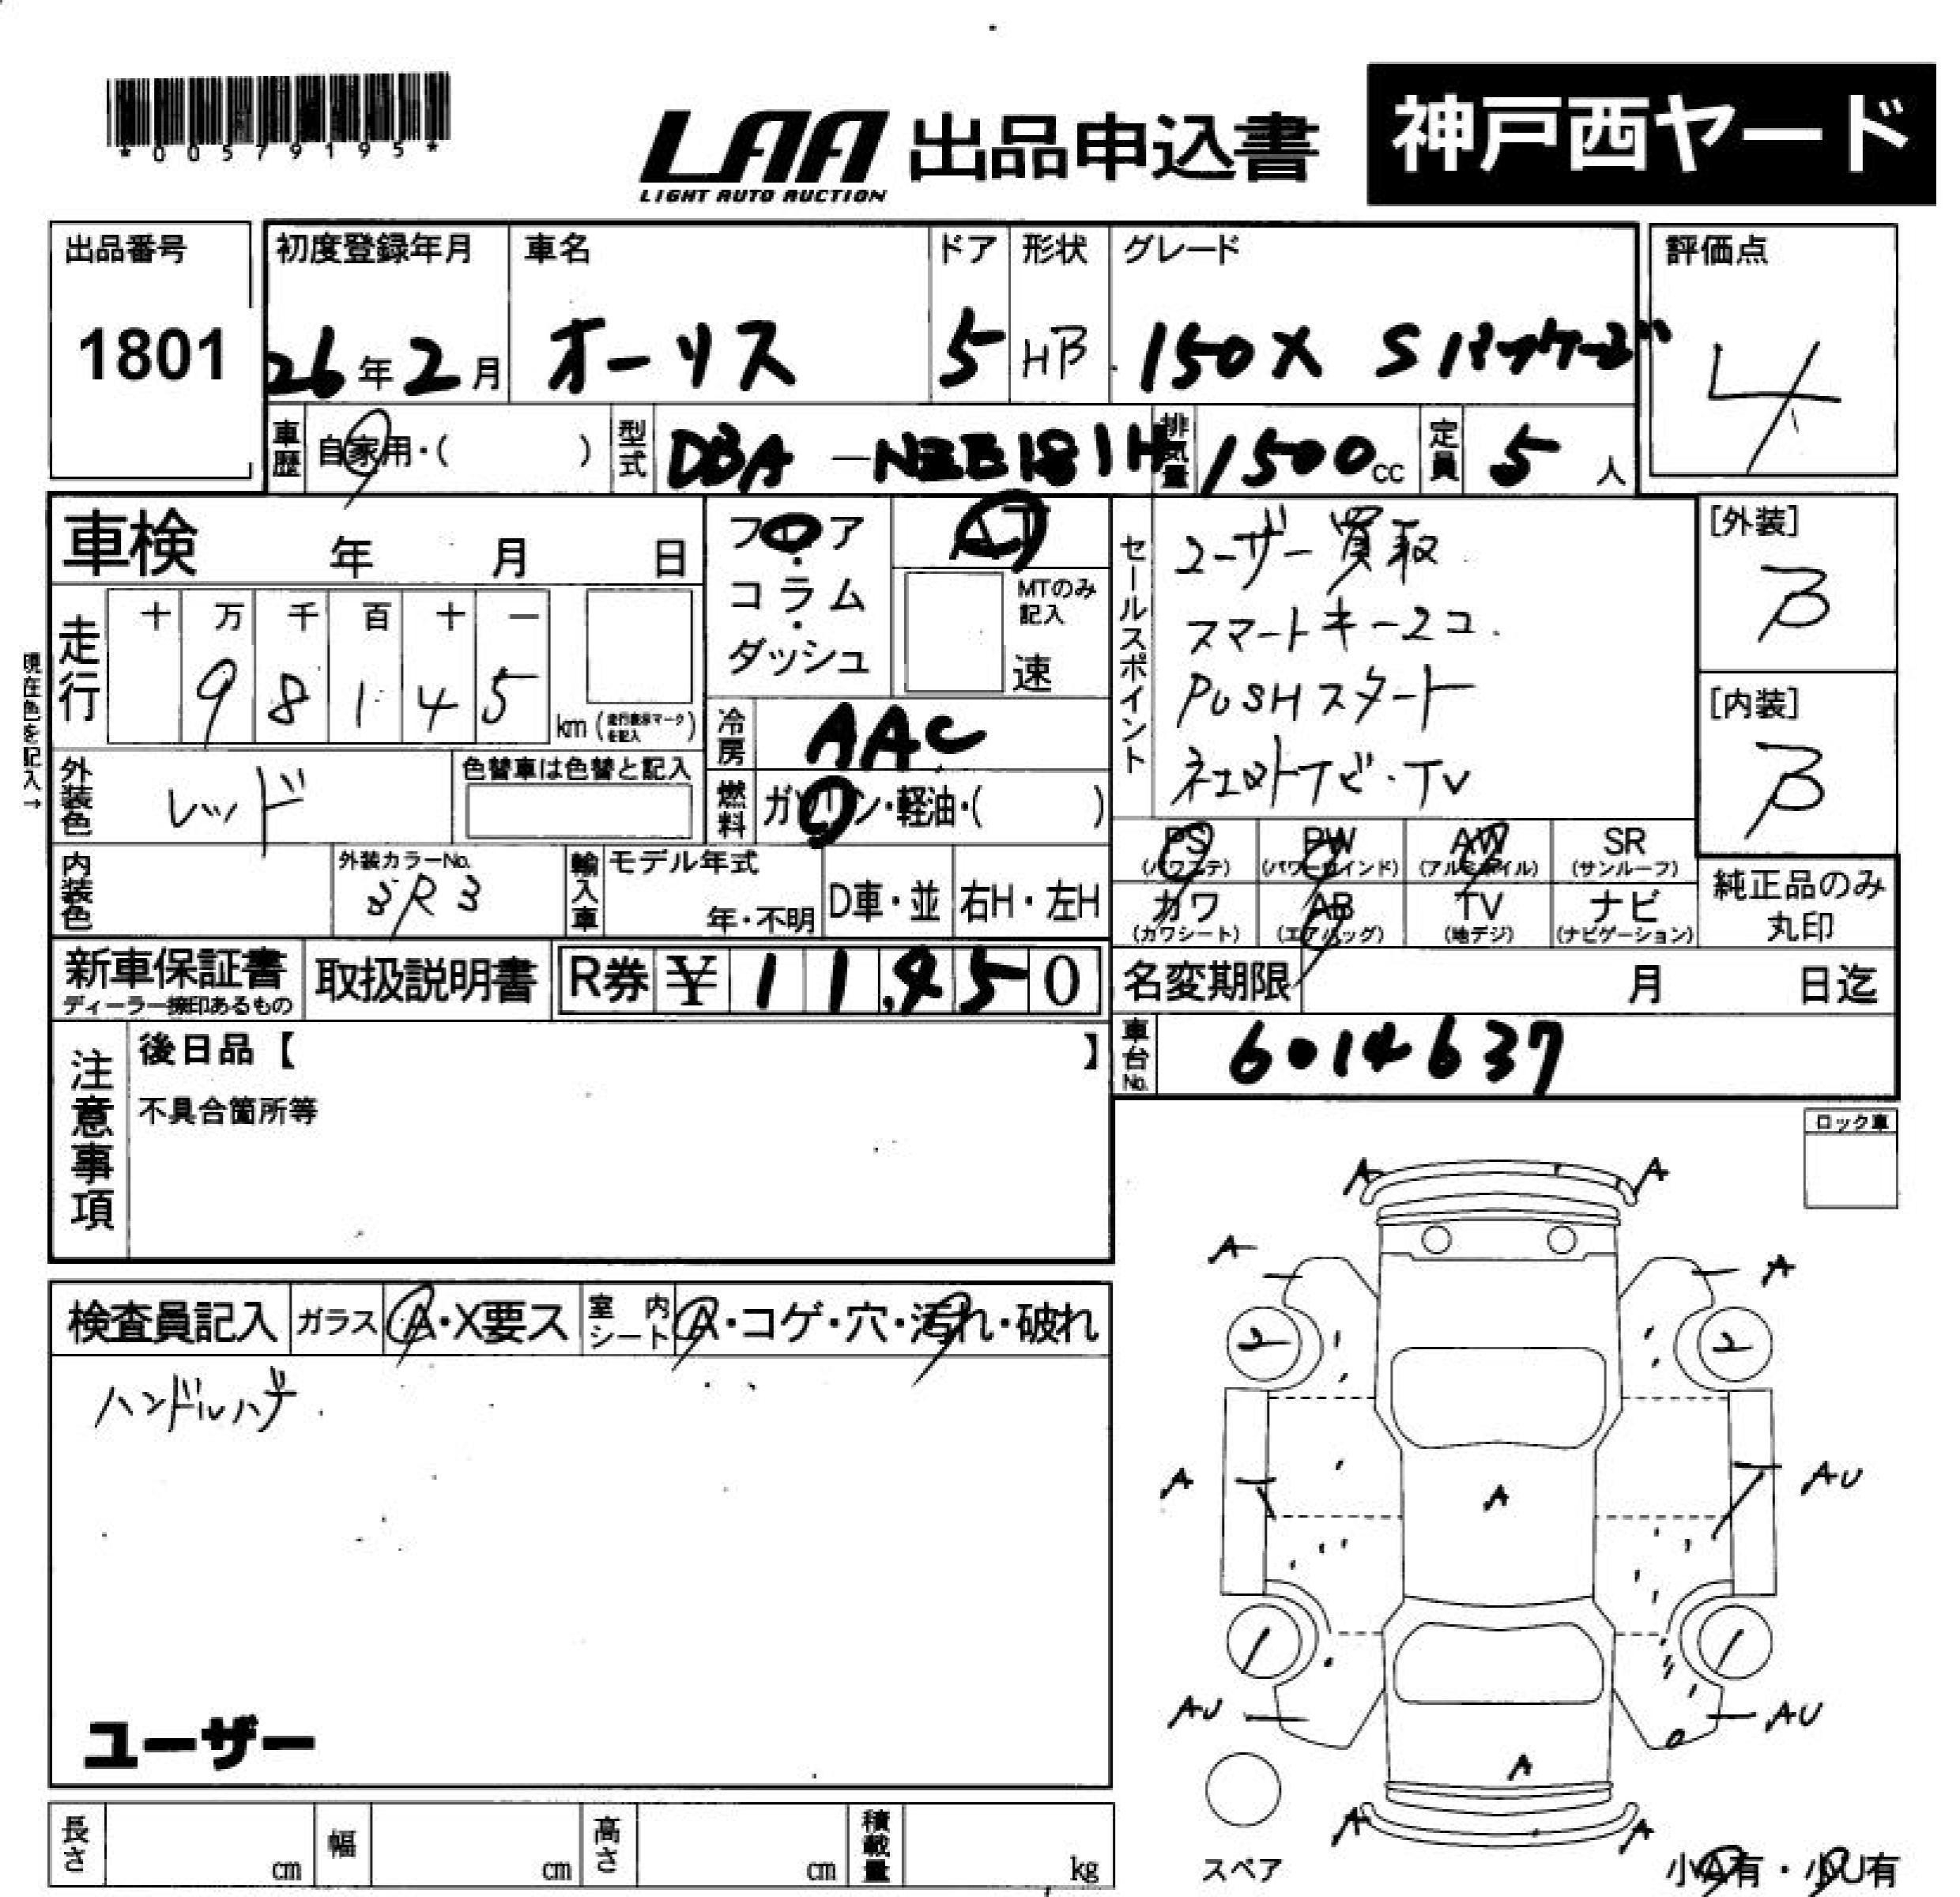 *00579195*
LAA 出品申込書 神戸西ヤード
LIGHT AUTO AUCTION
出品番号 初度登録年月 車名 ドア 形状 グレード 評価点
1801 26年2月 オーリス 5 HB 150X Sパッケージ 4
車歴 自家用・( ) 型式 DBA-NZE181H 排気量 1500cc 定員 5人
車検 年 月 日 フロア AT
コラム MTのみ記入
ダッシュ 速
走行 十 万 千 百 十 一
9 8 1 4 5 km (走行表示マークを記入)
現在色を記入→
冷房 AAC
外装色 レッド 色替車は色替と記入
燃料 ガソリン・軽油・( )
内装色 外装カラーNo. 3R3 輸入車 モデル年式 年・不明 D車・並 右H・左H
新車保証書 取扱説明書 R券 ¥ 11,450
ディーラー捺印あるもの
セールスポイント
ユーザー買取
スマートキー2コ.
PUSHスタート
TV
[外装] B
[内装] B
PS PW AW SR
(パワステ) (パワーウインド) (アルミホイル) (サンルーフ)
カワ AB TV ナビ
(カワシート) (エアバッグ) (地デジ) (ナビゲーション)
純正品のみ
丸印
名変期限 月 日迄
車台No. 6014637
注意事項
後日品【 】
不具合箇所等
ロック車
検査員記入 ガラス A・X要ス 室内シート A・コゲ・穴・汚れ・破れ
ハンドルハゲ
ユーザー
A A
A A
2 2
A A AU
AU AU
A
A A
スペア
小A有・小U有
長さ cm 幅 cm 高さ cm 積載量 kg